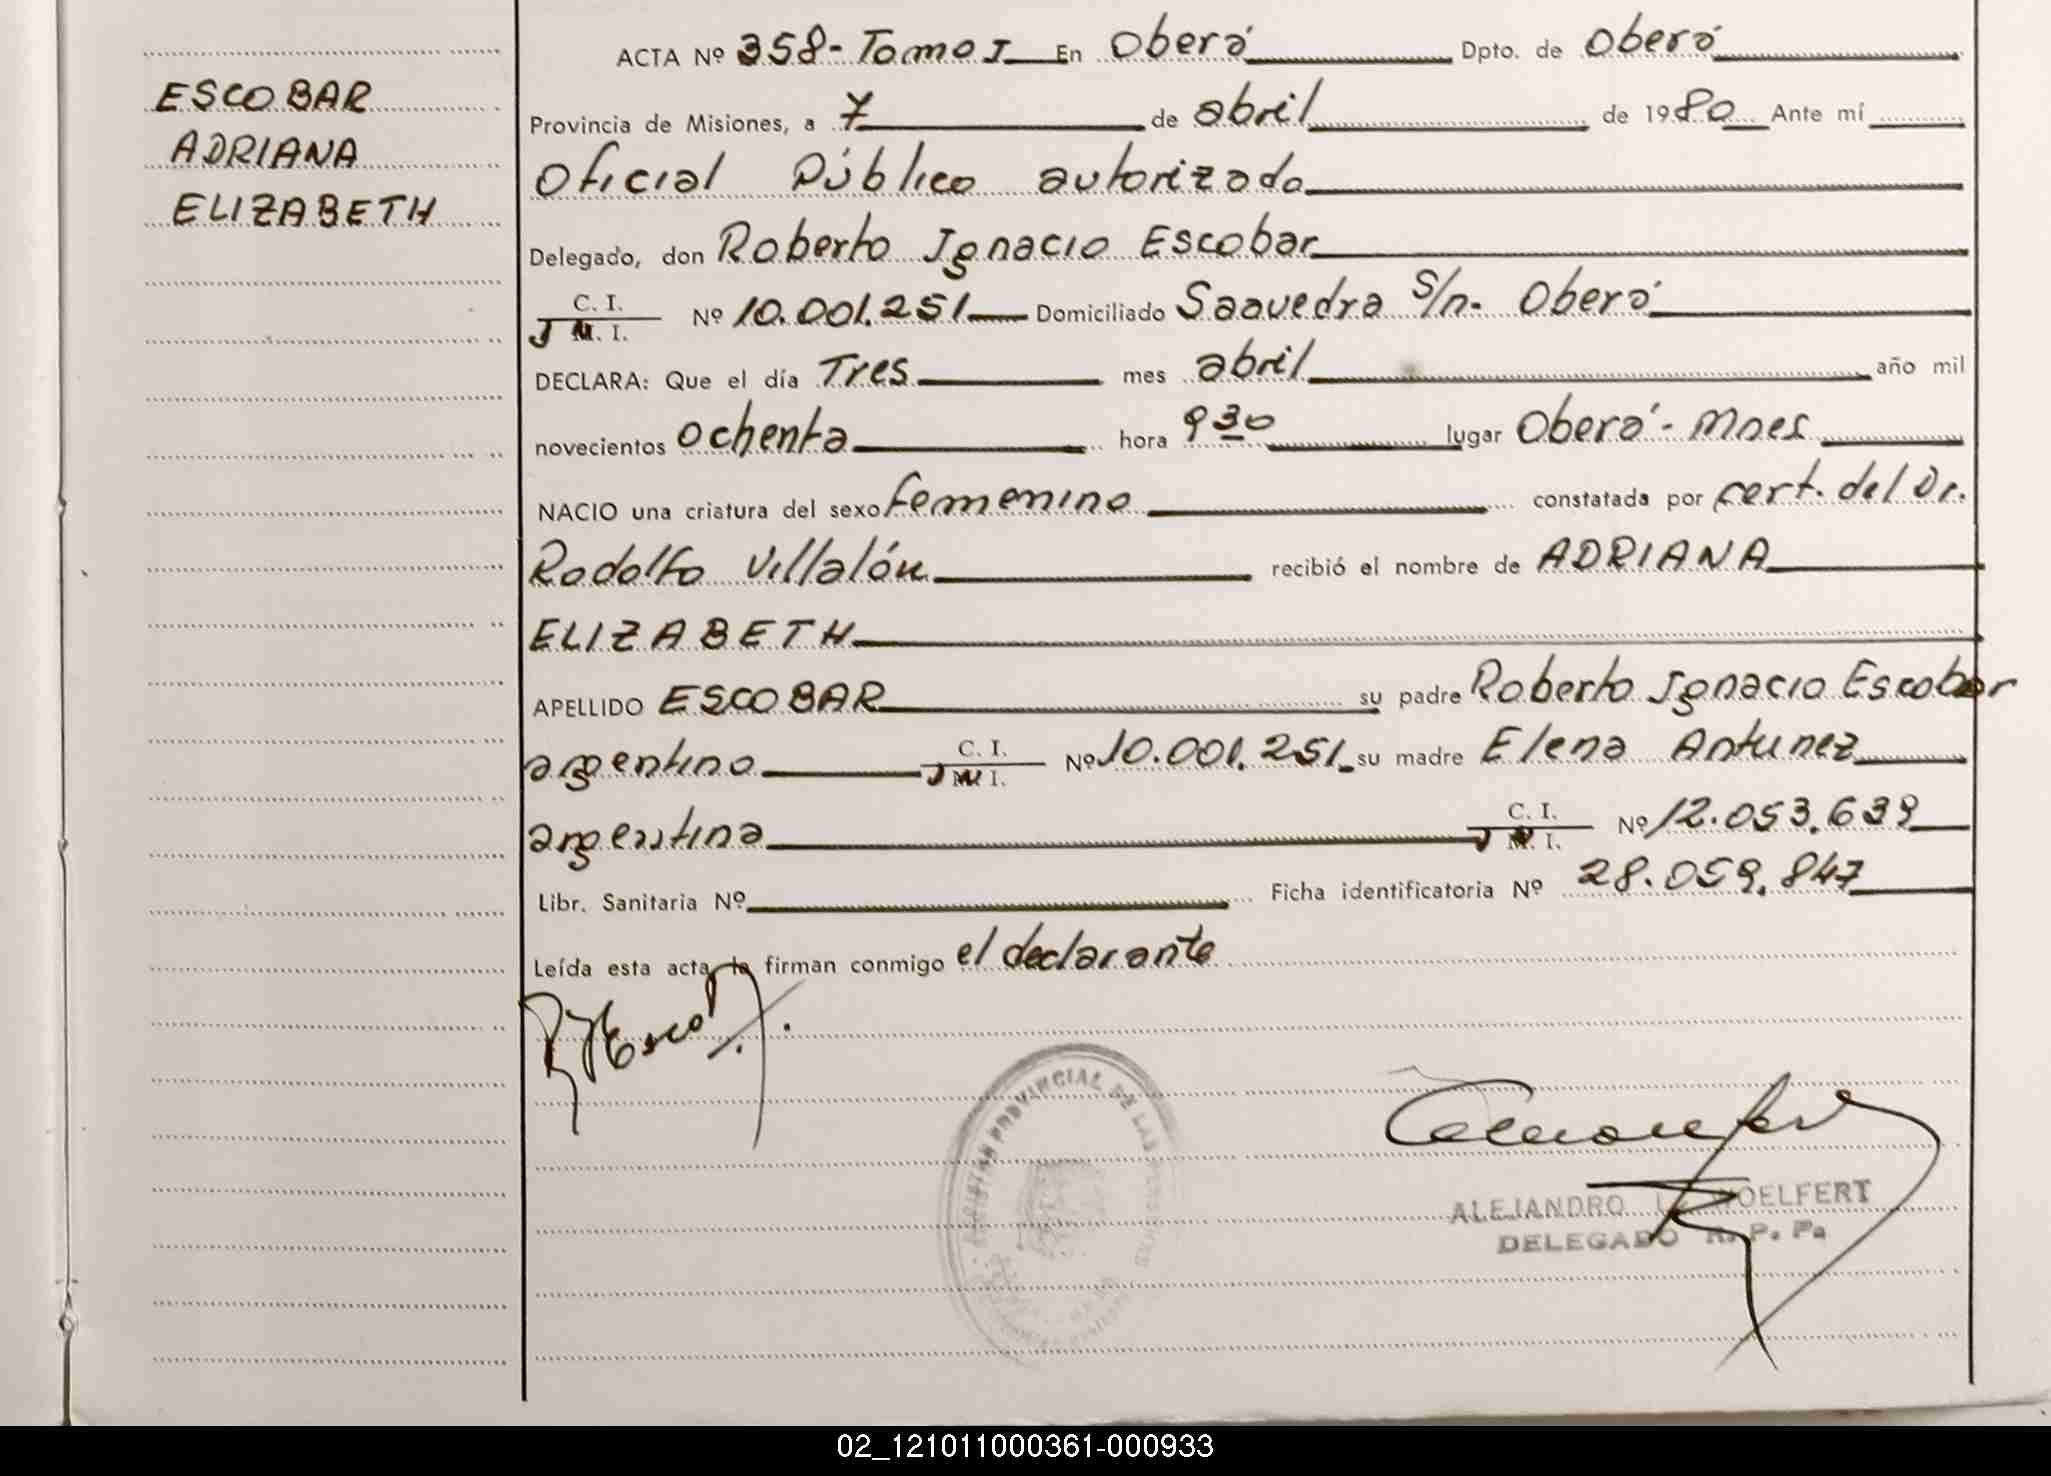 ESCOBAR
ADRIANA
ELIZABETH
ACTA Nº 358 - Tomo I En Oberá Dpto. de Oberá
Provincia de Misiones, a 7 de abril de 1980 Ante mí
Oficial Público autorizado
Delegado, don Roberto Ignacio Escobar
C. I.
M. I. Nº 10.001.251 Domiciliado Saavedra s/n. Oberá
DECLARA: Que el día Tres mes abril año mil
novecientos ochenta hora 9 30 lugar Oberá - Mnes
NACIO una criatura del sexo femenino constatada por cert. del Dr.
Rodolfo Villalón recibió el nombre de ADRIANA
ELIZABETH
APELLIDO ESCOBAR su padre Roberto Ignacio Escobar
argentino C. I. M. I. Nº 10.001.251 su madre Elena Antunez
argentina C. I. M. I. Nº 12.053.639
Libr. Sanitaria Nº Ficha identificatoria Nº 28.059.847
Leída esta acta, la firman conmigo el declarante
PROVINCIAL DE LAS PERSONAS
ALEJANDRO WOELFERT
DELEGADO R. P. Pa
02_121011000361-000933